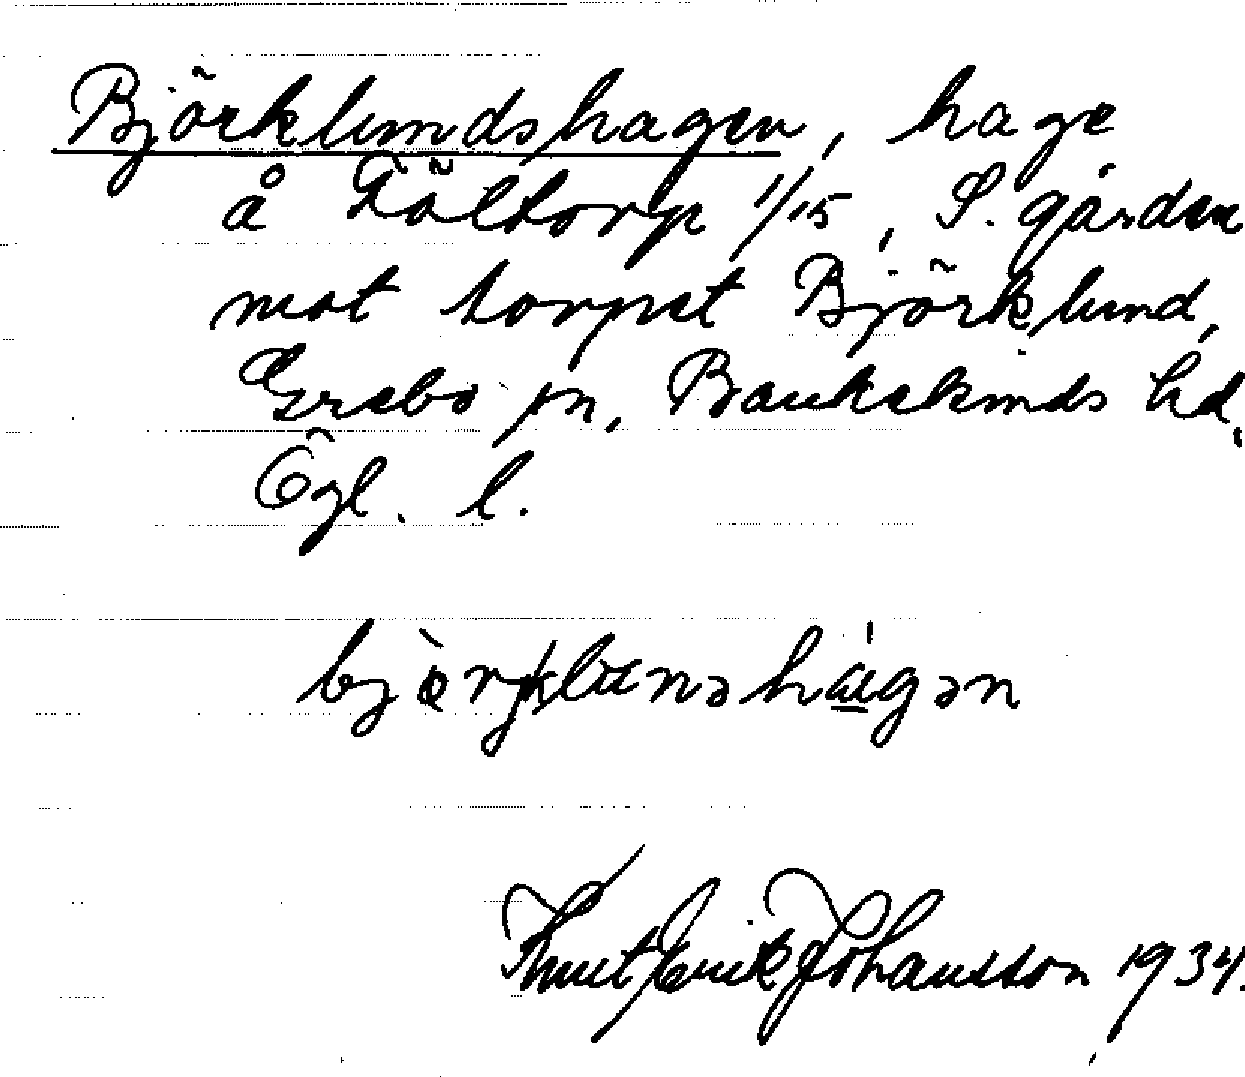 Björklundshagen, hage
å Föltorp 1/15, S. gården
mot torpet Björklund,
Grebo sn, Bankekinds hd,
Ögl. l.
Knut Erik Johansson 1934.